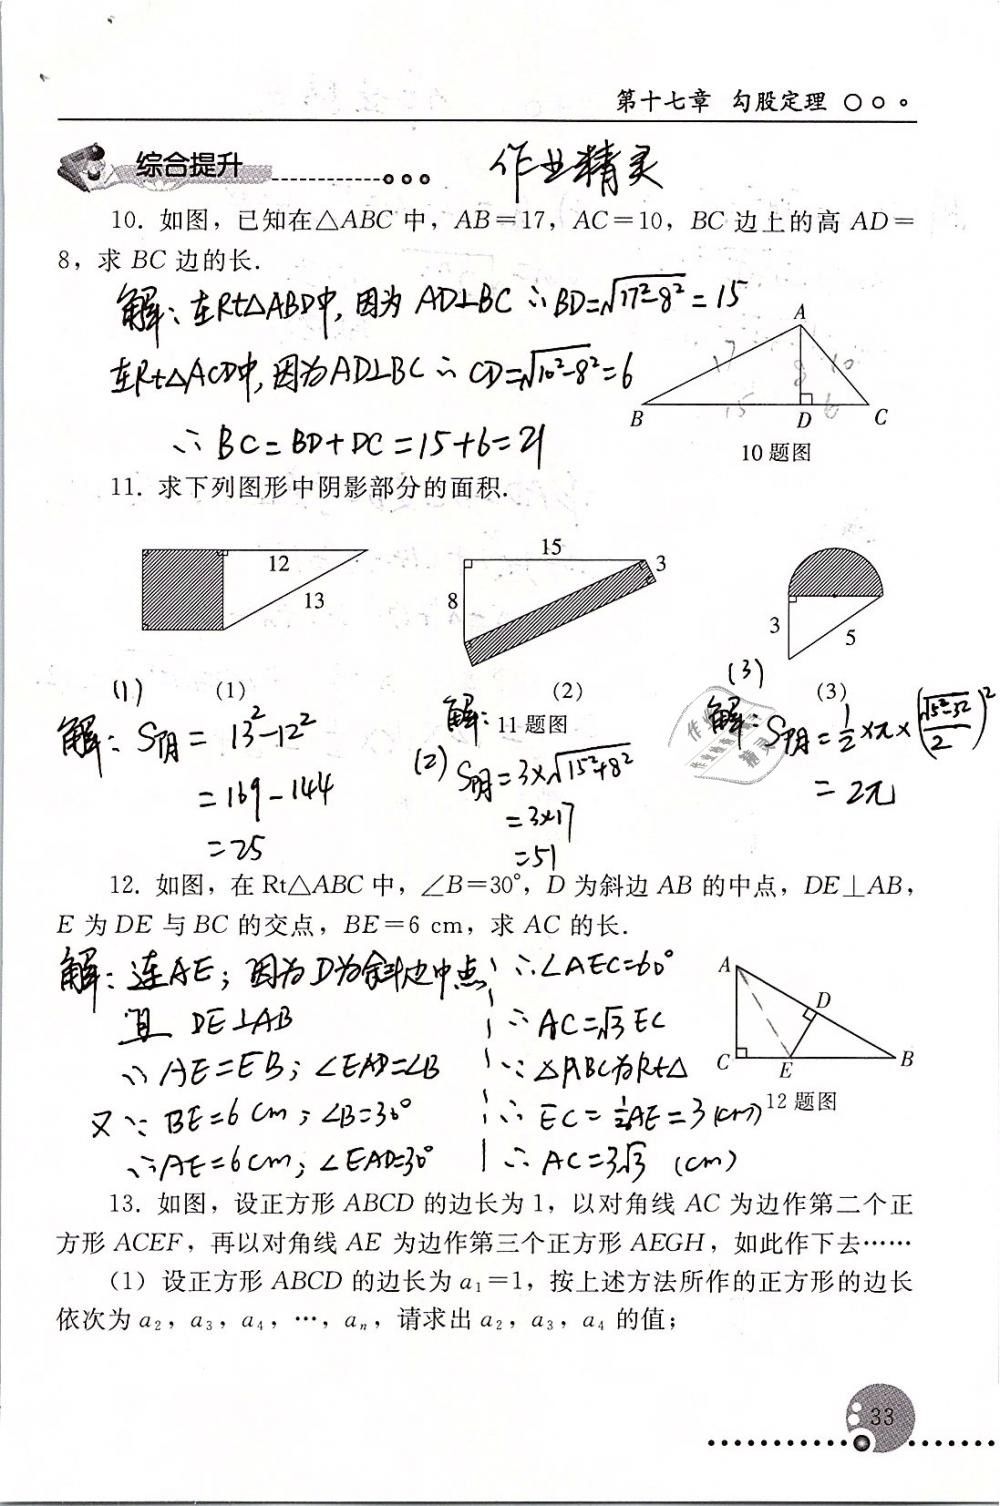 第十七章 勾股定理
综合提升
作业精灵
10. 如图，已知在△ABC 中，AB＝17，AC＝10，BC 边上的高 AD＝
8，求 BC 边的长.
解：在Rt△ABD中，因为 AD⊥BC ∴BD=√17²-8² = 15
在Rt△ACD中，因为AD⊥BC ∴ CD=√10²-8²=6
∴BC=BD+DC=15+6=21
A
17
8
10
B
15
D
6
C
10 题图
11. 求下列图形中阴影部分的面积.
12
13
15
3
8
3
5
(1)
(1)
(2)
(3)
(3)
11 题图
解：S阴= 13²-12²
=169-144
=25
解：
(2) S阴=3×√15²+8²
=3×17
=51
解：S阴=1/2×π×(√5²-3²/2)²
= 2π
作业精灵
12. 如图，在 Rt△ABC 中，∠B＝30°，D 为斜边 AB 的中点，DE⊥AB，
E 为 DE 与 BC 的交点，BE＝6 cm，求 AC 的长.
解：连AE；因为D为斜边中点
且 DE⊥AB
∴AE=EB；∠EAD=∠B
又∵BE=6cm；∠B=30°
∴AE=6cm；∠EAD=30°
∴∠AEC=60°
∴AC=√3EC
∵△ABC为Rt△
∴EC=1/2AE=3(cm)
∴AC=3√3 (cm)
A
D
C
E
B
12 题图
13. 如图，设正方形 ABCD 的边长为 1，以对角线 AC 为边作第二个正
方形 ACEF，再以对角线 AE 为边作第三个正方形 AEGH，如此作下去……
(1) 设正方形 ABCD 的边长为 a₁＝1，按上述方法所作的正方形的边长
依次为 a₂，a₃，a₄，…，aₙ，请求出 a₂，a₃，a₄ 的值；
33